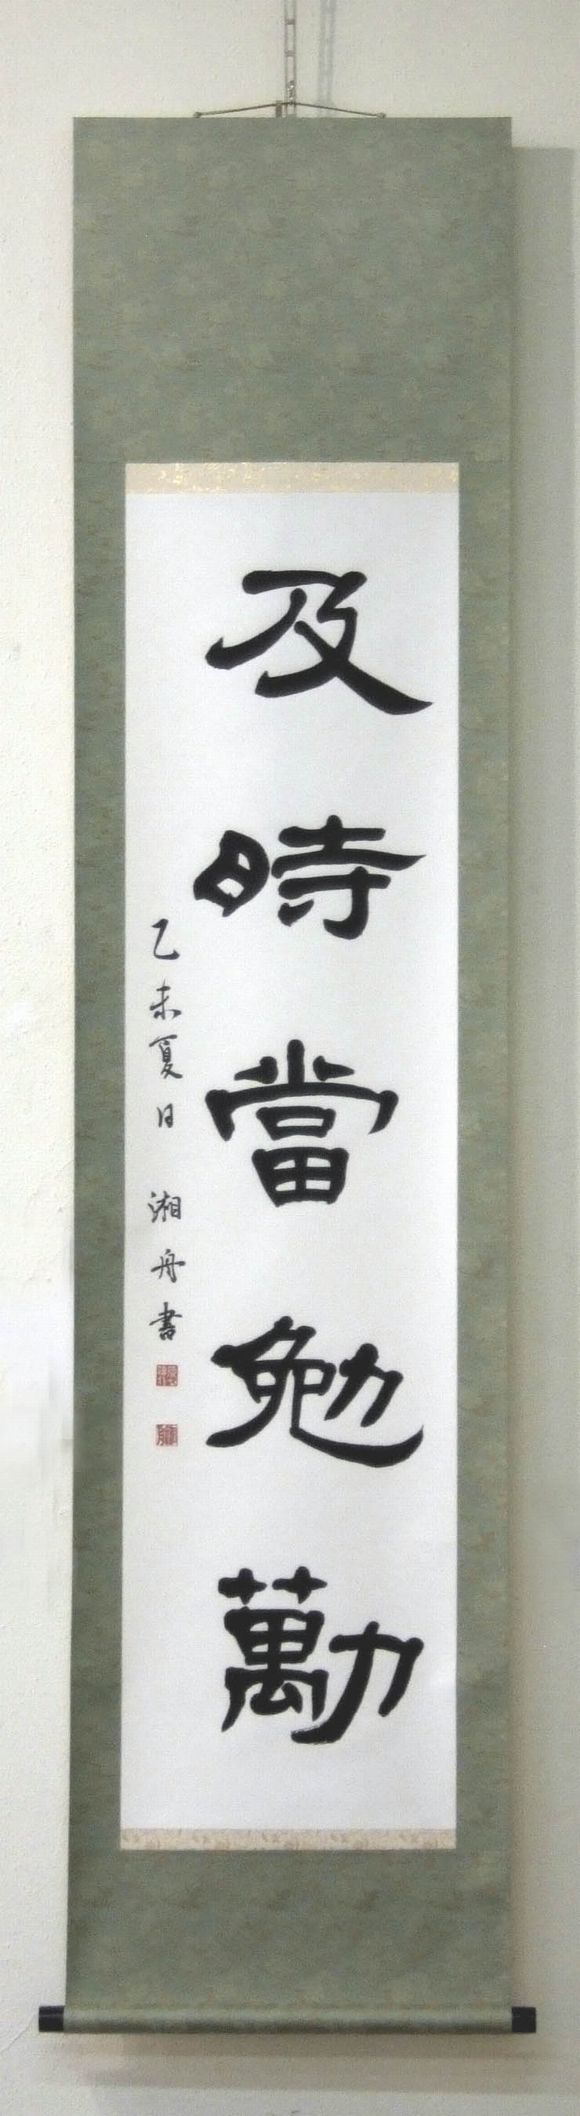 及時當勉勱
乙未夏日 湘舟書